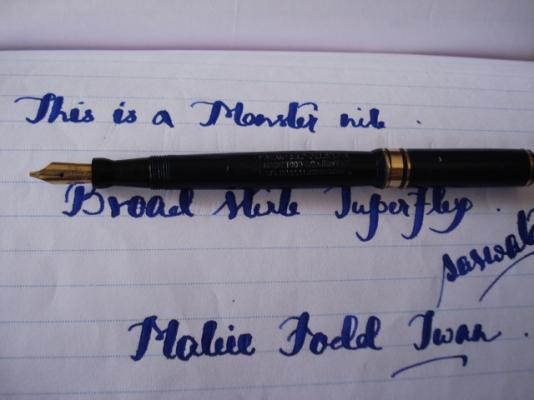 This is a Monster nib .
Broad Stub Superflex .
Mabie Todd Swan .